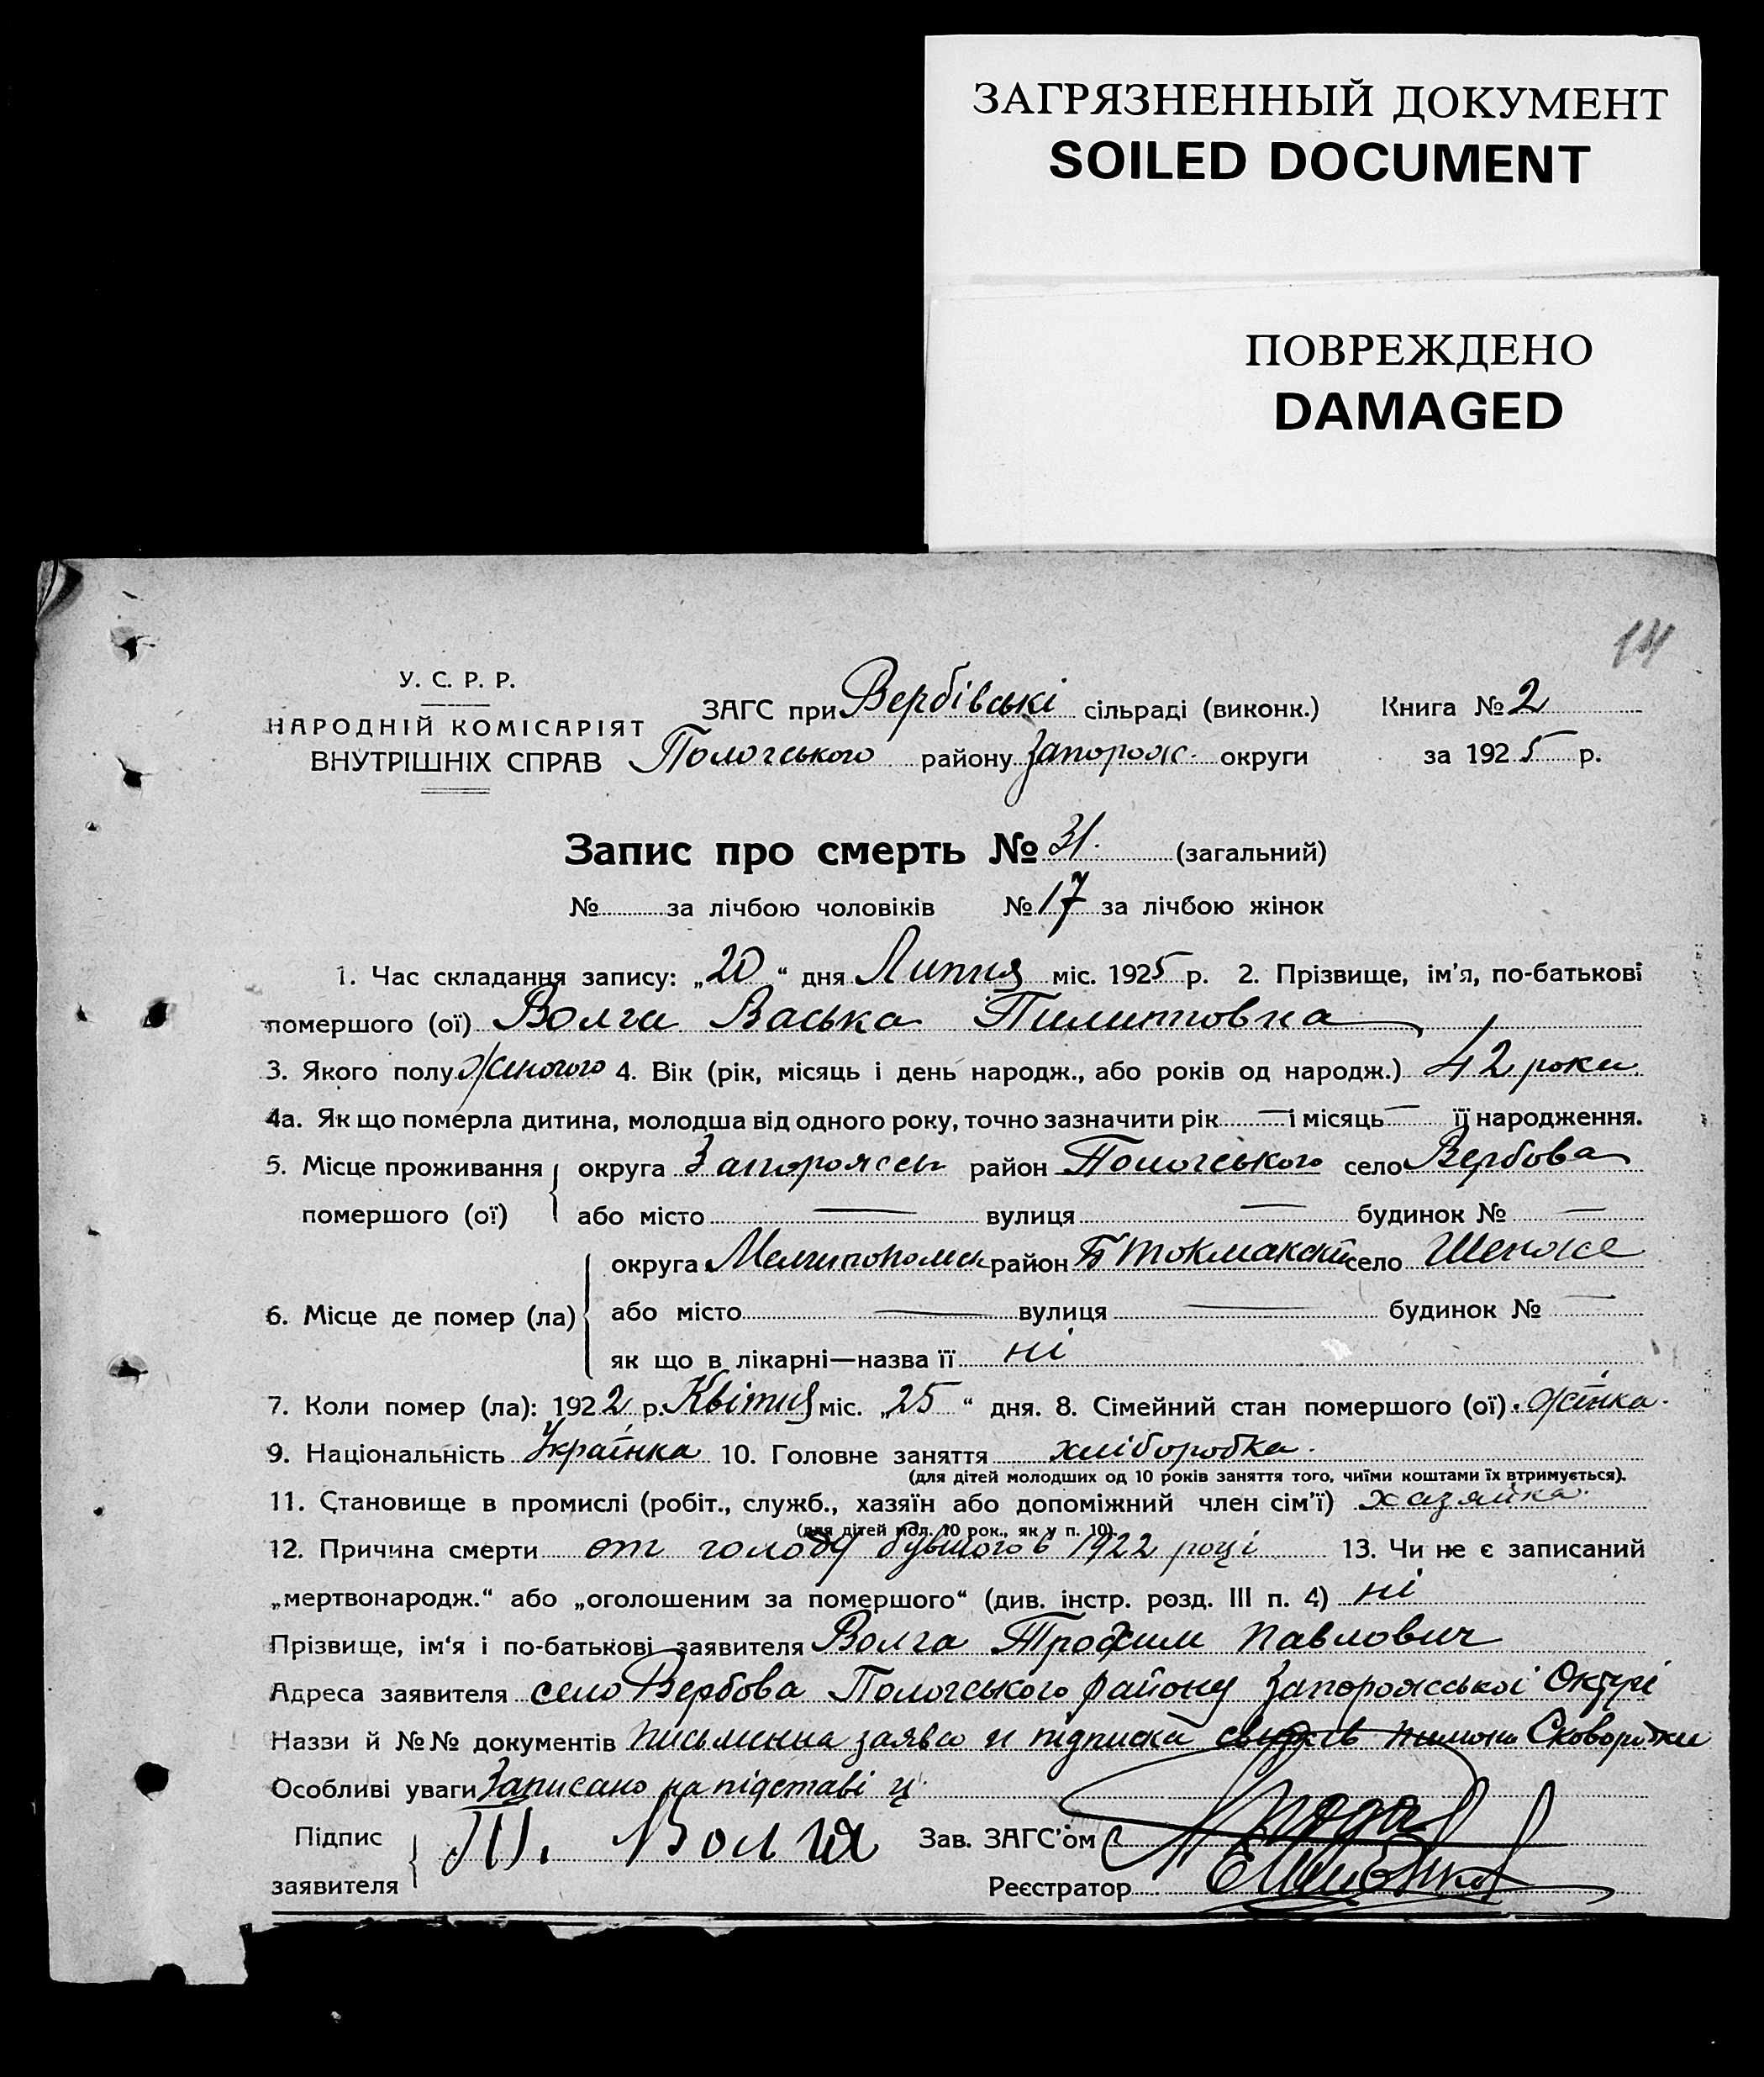 ЗАГРЯЗНЕННЫЙ ДОКУМЕНТ
SOILED DOCUMENT
ПОВРЕЖДЕНО
DAMAGED
14
У. С. Р. Р.
НАРОДНІЙ КОМІСАРІЯТ
ВНУТРІШНІХ СПРАВ
ЗАГС при Вербівські сільраді (виконк.) Книга № 2
Пологського району Запорож. округи за 1925 р.
Запис про смерть № 31. (загальний)
№ за лічбою чоловіків № 17 за лічбою жінок
1. Час складання запису: „20“ дня Липня міс. 1925 р. 2. Прізвище, ім'я, по-батькові
помершого (ої) Волга Васька Пилиповна
3. Якого полу женого 4. Вік (рік, місяць і день народж., або років од народж.) 42 роки
4а. Як що померла дитина, молодша від одного року, точно зазначити рік — і місяць — її народження.
5. Місце проживання округа район Пологського село Вербова
помершого (ої) або місто — вулиця — будинок № —
6. Місце де помер (ла) округа район Б Токмакский село
або місто — вулиця — будинок № —
як що в лікарні—назва її ні
7. Коли помер (ла): 1922 р. Квітня міс. „25“ дня. 8. Сімейний стан помершого (ої). жінка.
9. Національність Українка 10. Головне заняття хліборобка.
(для дітей молодших од 10 років заняття того, чиїми коштами їх втримується).
11. Становище в промислі (робіт., служб., хазяїн або допоміжний член сім'ї) хазяйка.
(для дітей мол. 10 рок., як у п. 10).
12. Причина смерти от голоду бувшого в 1922 році 13. Чи не є записаний
„мертвонародж.“ або „оголошеним за помершого“ (див. інстр. розд. III п. 4) ні
Прізвище, ім'я і по-батькові заявителя Волга Трохим Павлович
Адреса заявителя село Вербова Пологського району Запорожської Округі
Наззи й №№ документів письменна заява и підписка Сковородки
Особливі уваги Записано на підставі ц.
Підпис заявителя Т. Волга Зав. ЗАГС'ом
Реєстратор